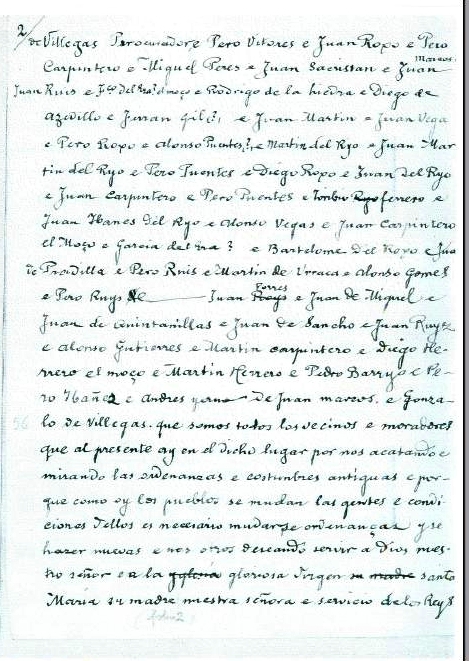 2/
de Villegas Procuradore e Pero Vitores e Juan Roxo e Pero
Carpintero e Miguel Peres e Juan Sacristan e Juan Marcos
Juan Ruis e Fco del Era? el moço e Rodrigo de la hiedra e Diego de
Azedillo e Ferran Gil? e Juan Martin e Juan Vega
e Pero Roxo e Alonso Puentes?, e Martin del Ryo e Juan Mar
tin del Ryo e Pero Puentes e Diego Roxo e Juan del Ryo
e Juan Carpintero e Pero Puentes e Ryo ferrero e
Juan Ibanes del Ryo e Alonso Vegas e Juan Carpintero
el Moço e Garcia del Era? e Bartolome Del Roxo e Jua
de Proadilla e Pero Ruis e Martin de Urraca e Alonso Gomes
e Pero Ruys de Juan Torres e Juan de Miguel e
Juan de Quintanillas e Juan de Sancho e Juan Ruyz
e Alonso Gutierres e Martin Carpintero e Diego He-
rrero el moço e Martin Herrero e Pedro Barryo e Pe-
ro Ibañez e Andres yerno De Juan marcos. e Gonza-
lo de Villegas. que somos todos los vecinos e moradores
56
que al presente ay en el dicho lugar por nos acatando e
mirando las ordenanzas e costumbres antiguas e por-
que como oy los pueblos se mudan las gentes e condi-
ciones dellos es necesario mudarse ordenanças y se
hazer nuevas e nos otros deseando servir a Dios nues-
tro señor e a la yglesia gloriosa Virgen su madre santa
Maria su madre nuestra señora e servicio de los Reys
(folio 2)